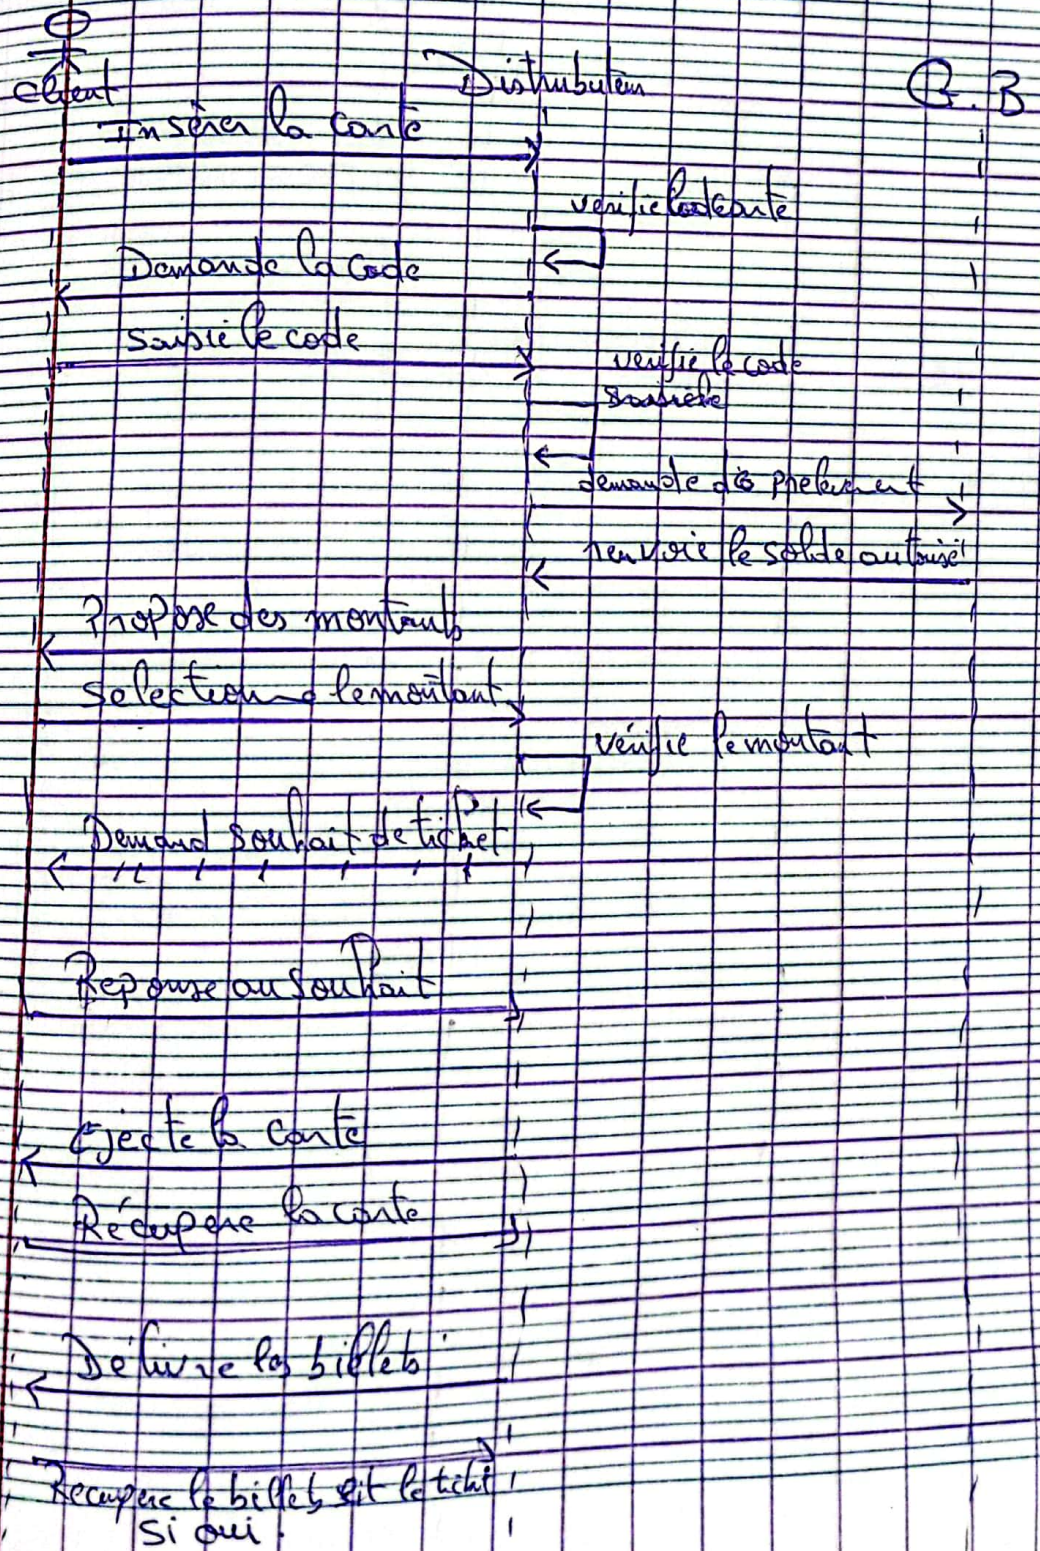 Client
Distributeur
G.B
Insérer la carte
verifie la carte
Demande la code
saisie le code
verifie le code
demande de prelevement
renvoie le solde autorisé
Propose des montants
selectionne le montant
vérifie le montant
Demand souhait de ticket
Reponse au souhait
Ejecte la carte
Récupere la carte
Délivre les billets
Recupere le billets et le ticket
si oui.